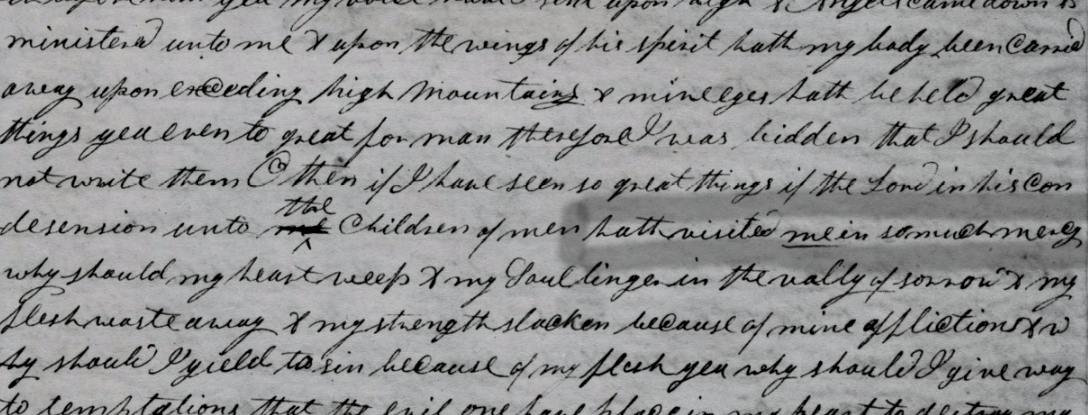 yea my voice upon high & Angels came down &
ministerd unto me & upon the wings of his spirit hath my body been carried
away upon exceeding high mountains & mine eyes hath beheld great
things yea even to great for man therefore I was bidden that I should
not write them O then if I have seen so great things if the Lord in his con
desension unto the me Children of men hath visited me in so much mercy
why should my heart weep & my Soul linger in the vally of sorrow & my
flesh waste away & my strength slacken because of mine afflictions & w
hy should I yield to sin because of my flesh yea why should I give way
to temptations that the evil one have place in my heart to destroy my